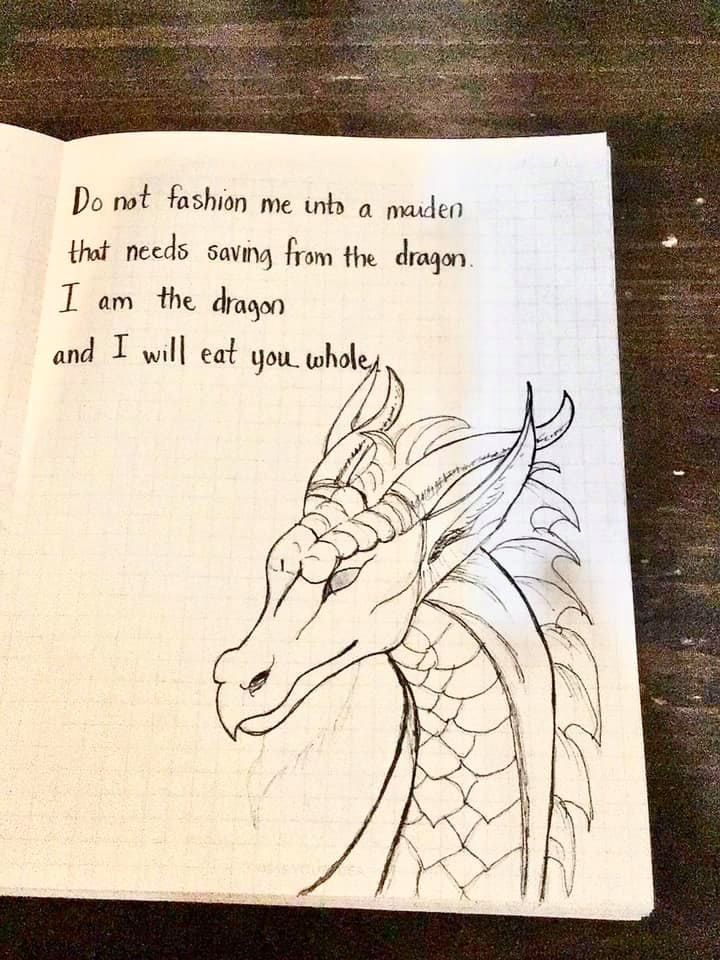 Do not fashion me into a maiden
that needs saving from the dragon.
I am the dragon
and I will eat you whole.